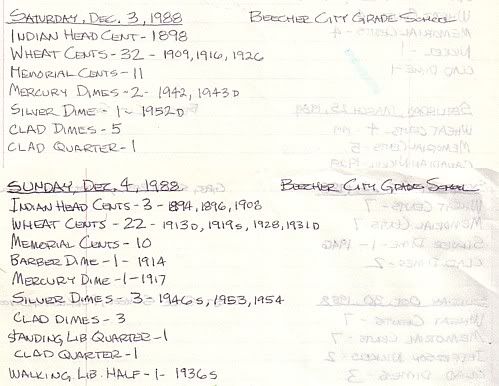 SATURDAY, DEC. 3, 1988 BEECHER CITY GRADE SCHOOL
INDIAN HEAD CENT - 1898
WHEAT CENTS - 32 - 1909, 1916, 1926
MEMORIAL CENTS - 11
MERCURY DIMES - 2 - 1942, 1943D
SILVER DIME - 1 - 1952D
CLAD DIMES - 5
CLAD QUARTER - 1
SUNDAY, DEC. 4, 1988 BEECHER CITY GRADE SCHOOL
INDIAN HEAD CENTS - 3 - 1894, 1896, 1908
WHEAT CENTS - 22 - 1913D, 1919S, 1928, 1931D
MEMORIAL CENTS - 10
BARBER DIME - 1 - 1914
MERCURY DIME - 1 - 1917
SILVER DIMES - 3 - 1946S, 1953, 1954
CLAD DIMES - 3
STANDING LIB QUARTER - 1
CLAD QUARTER - 1
WALKING LIB. HALF - 1 - 1936S